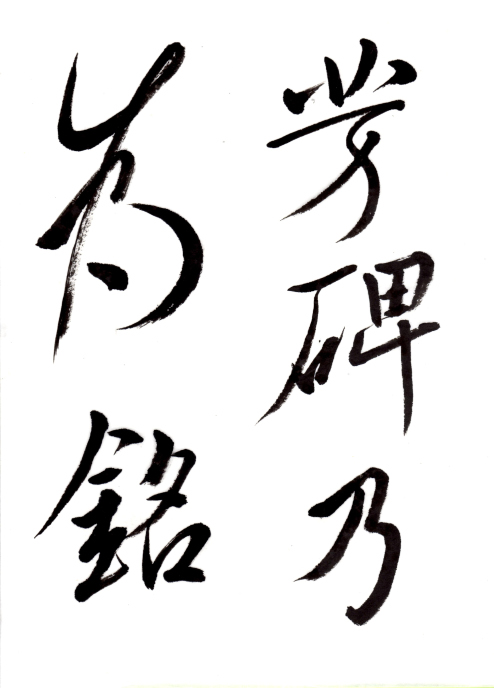 芳碑乃
為銘